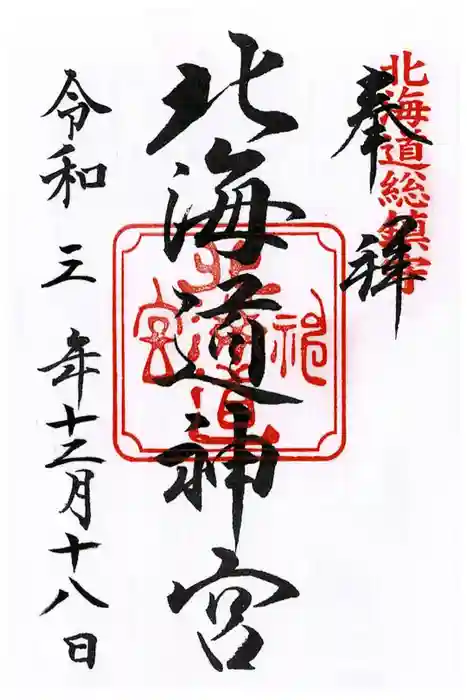 奉拝
北海道総鎮守
北海道神宮
北海道神宮
令和三年十二月十八日